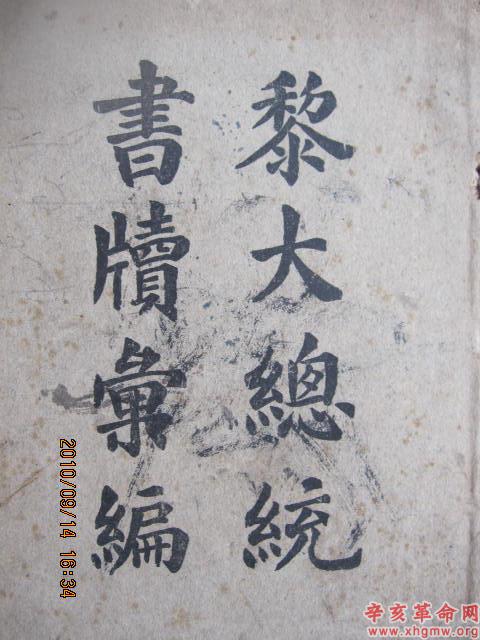 黎大總統
書牘彙編
2010/09/14 16:34
辛亥革命网
www.xhgmw.org